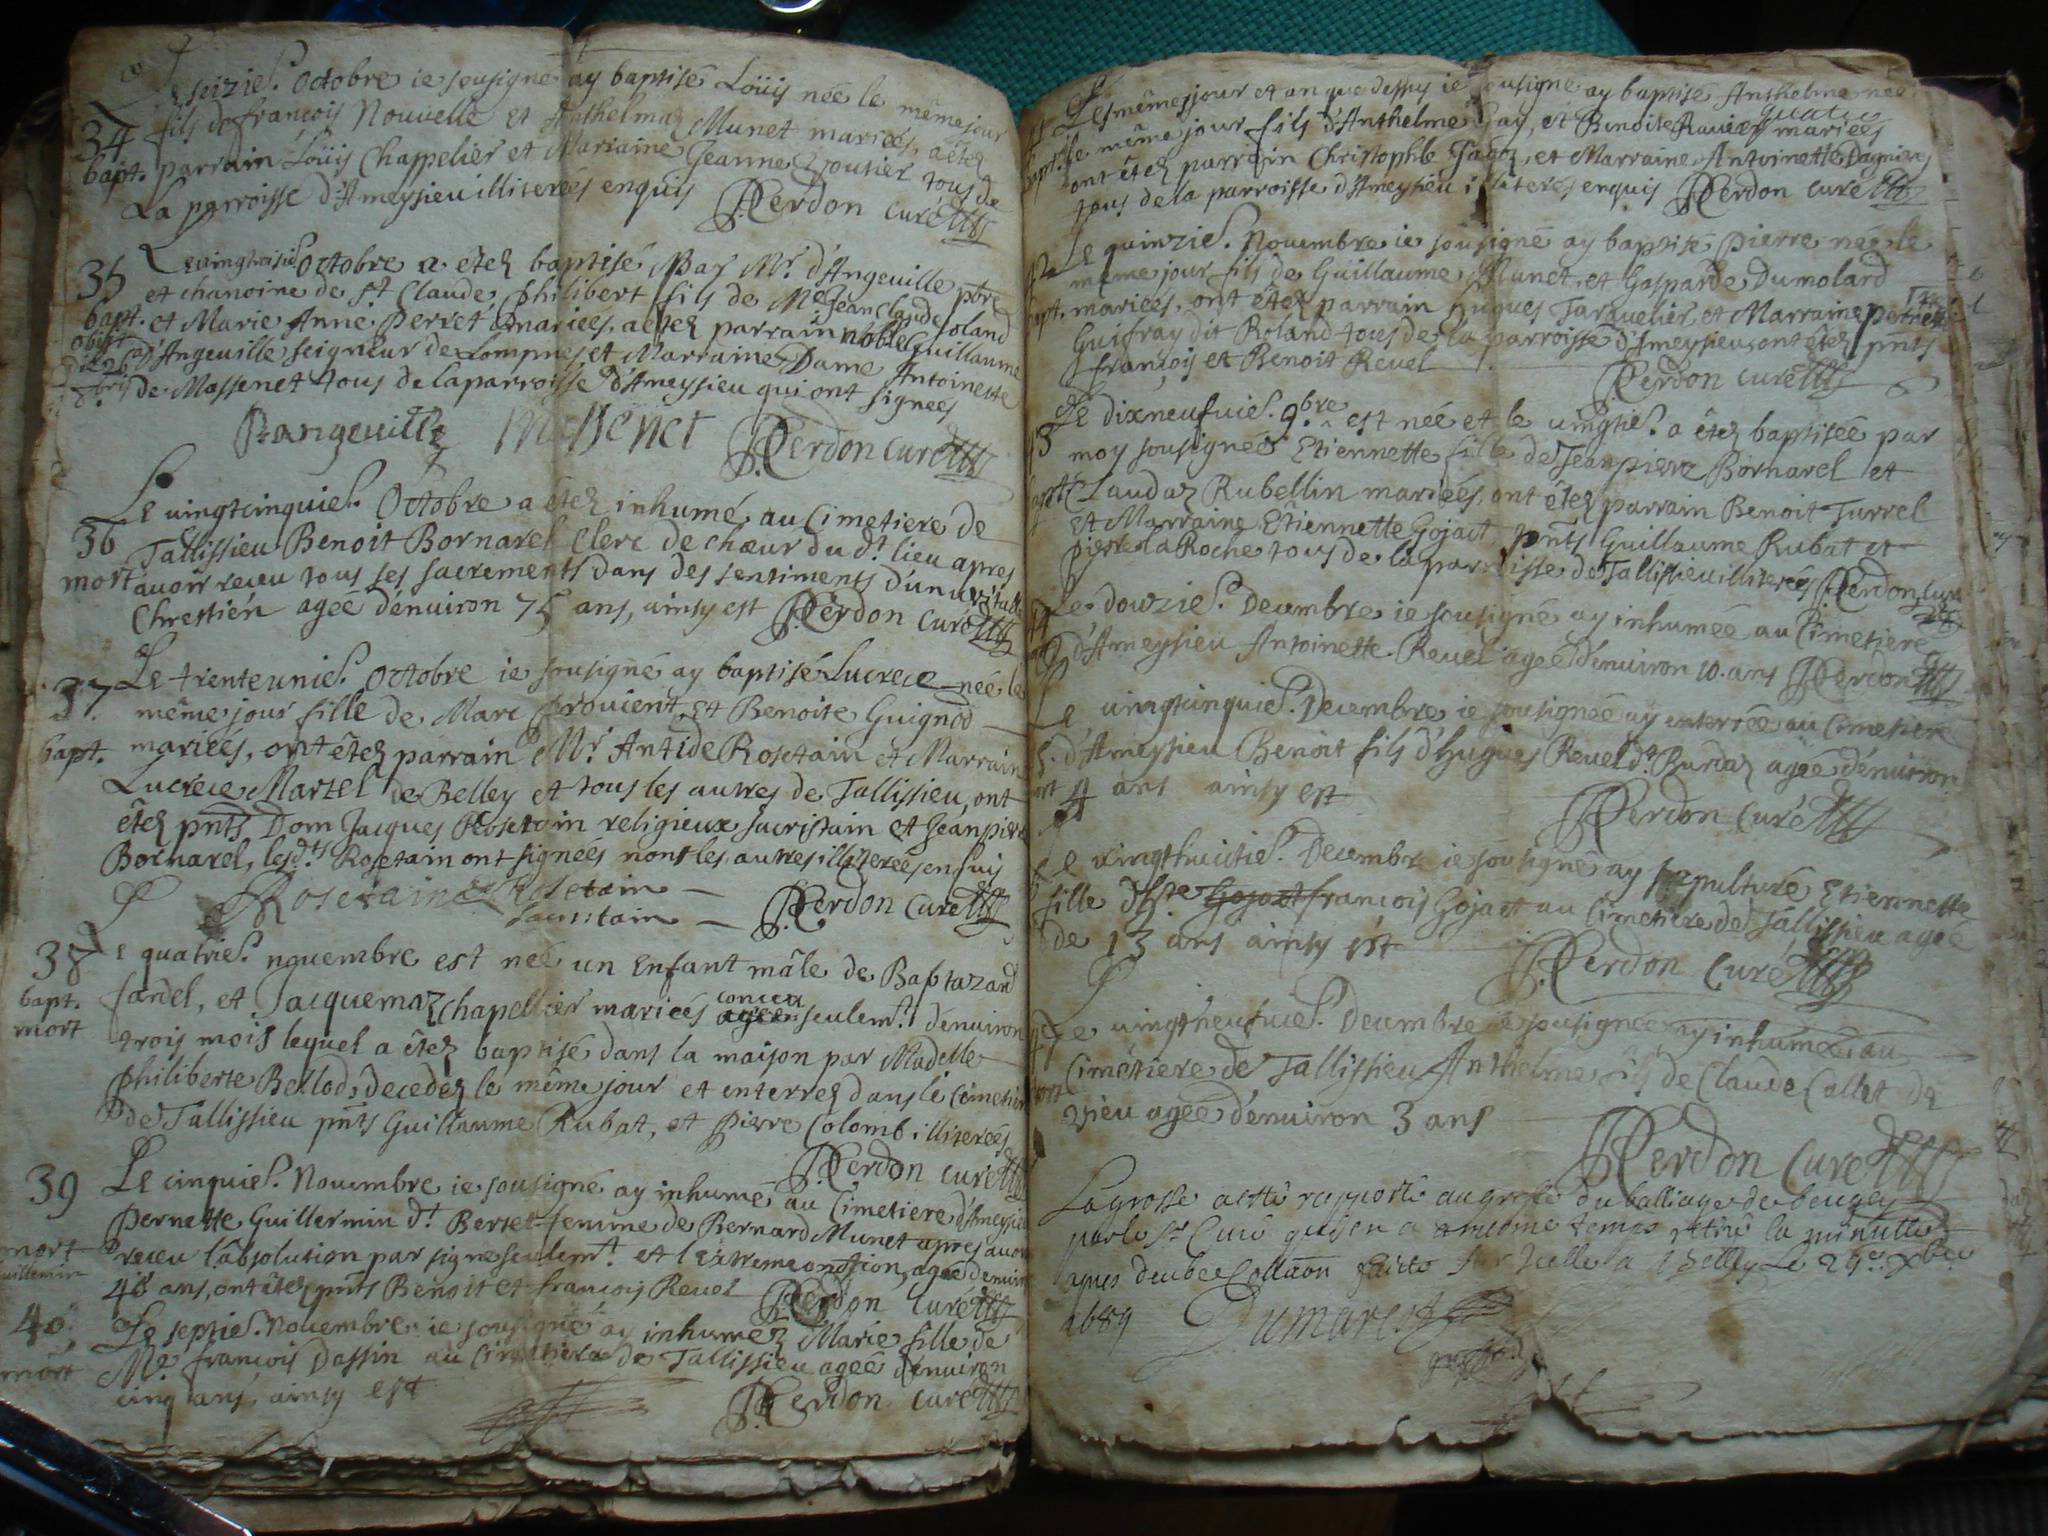 Le seizie. Octobre ie sousigné ay baptisé Loüis née le même jour
34 fils de françois Nouvelle et Anthelmaz Munet mariées, a êtez
bapt. parrain Loüis Chappelier et Mariaine Jeanne tous de
La parroisse d'Ameysieu illiterées enquis Perdon curé
35 Le vingtroisie Octobre a êtez baptisé Par Mr. d'Angeuille pbre
et chanoine de St Claude, philibert fils de Me Jean Claude Joland
bapt. et Marie Anne Perret mariees, a êtez parrain noble Guillaume
obijt d'Angeuille seigneur de Lompnes et Marraine Dame Antoinette
de Massenet tous de la parroisse d'Ameysieu qui ont signées
Dangeuille Massenet Perdon curé
Le vingtcinquie. Octobre a êtez inhumé au Cimetiere de
36 Tallissieu Benoit Bornarel Clerc de chœur du dt lieu apres
mort avoir receu tous ses sacrements dans des sentiments d'un
Chrestien ageé d'enuiron 75 ans, ainsy est Perdon curé
37 Le trenteunie. Octobre ie sousigné ay baptisé Lucrece neé le
même jour fille de Marc prouient et Benoite Guignod
bapt. mariees, ont êtez parrain Mr Antide Rosetain et Marraine
Lucrece Martel de Belley et tous les autres de Tallissieu, ont
êtez pnts Dom Jacques Rosetain religieux sacristain et Jean pierre
Bornarel, lesdts Rosetain ont signeés non les autres illitereés enquis
Rosetain Rosetain
sacristain Perdon Curé
38 Le quatrie. nouembre est neé un Enfant mâle de Baptazard
bapt. Jardel, et Jacquemaz Chapellier mariées conceu seulemt d'enuiron
mort trois mois lequel a êtez baptisé dans la maison par Madelle
philiberte Bellod, decedez le même jour et enterrez dans le Cimetiere
de Tallissieu pnts Guillaume Rubat, et pierre Colomb illitereés
Perdon curé
39 Le cinquie. Nouembre ie sousigné ay inhumé au Cimetiere d'Ameysieu
Pernette Guillermin dt Bertet femme de Bernard Munet apres auoir
mort receu l'absolution par signe seulemt et l'extremeonction, ageé d'enuiron
Guillemin 48 ans, ont êtez pnts Benoit et françois Reuel Perdon Curé
40 Le septie. Nouembre ie sousigné ay inhumez Marie fille de
mort Me françois Dassin au Cimetiere de Tallissieu ageé d'enuiron
cinq ans, ainsy est Perdon curé
Les même jour et an que dessus ie sousigné ay baptisé Anthelme neé
bapt. le même jour fils d'Anthelme Gay, et Benoite Rauier mariees
ont êtez parrain Christophle et Marraine Antoinette
tous de la parroisse d'Ameysieu illiterés enquis Perdon curé
Le quinzie. Nouembre ie sousigné ay baptisé pierre neé le
même jour fils de Guillaume Munet, et Gasparde Dumolard
bapt. mariées, ont êtez parrain Hugues Tarauelier, et Marraine
Guifray dit Roland tous de la parroisse d'Ameysieu, ont êtez pnts
françois et Benoit Reuel Perdon curé
Le dixneufuie. 9bre est neé et le vingtie. a êtez baptisée par
moy sousigneé Etiennette fille de Jean pierre Bornarel et
bapt. Claudaz Rubellin mariées, ont êtez parrain Benoit Turrel
et Marraine Etiennette Gojact, pnts Guillaume Rubat et
pierre La Roche tous de la parroisse de Tallissieu illiterés Perdon, curé
Le douzie. Decembre ie sousigné ay inhumeé au Cimetiere
d'Ameysieu Antoinette Reuel ageé d'enuiron 10. ans Perdon
Le vingtcinquie. Decembre ie sousigneé ay enterrée au Cimetiere
d'Ameysieu Benoit fils d'Hugues Reuel dt Burdaz ageé d'enuiron
4 ans ainsy est Perdon Curé
Le vingthuictie. Decembre ie sousigné ay sepulturé Etiennette
fille d'hte Gojact françois Gojact au Cimetiere de Tallissieu ageé
de 13 ans ainsy est Perdon Curé
Le vingtneufuie. Decembre ie sousigneé ay inhumeé au
Cimétiere de Tallissieu Anthelme fils de Claude Collet de
vieu ageé d'enuiron 3 ans
Perdon Curé
La grosse a esté rapporté au greffe du balliage de beugey
par le Sr Curé qui en a a mesme temps retiré la minutte
apres deube Collaõn faicte sur Icelle a Belley Le 29e. Xbre
1689 Dumarest